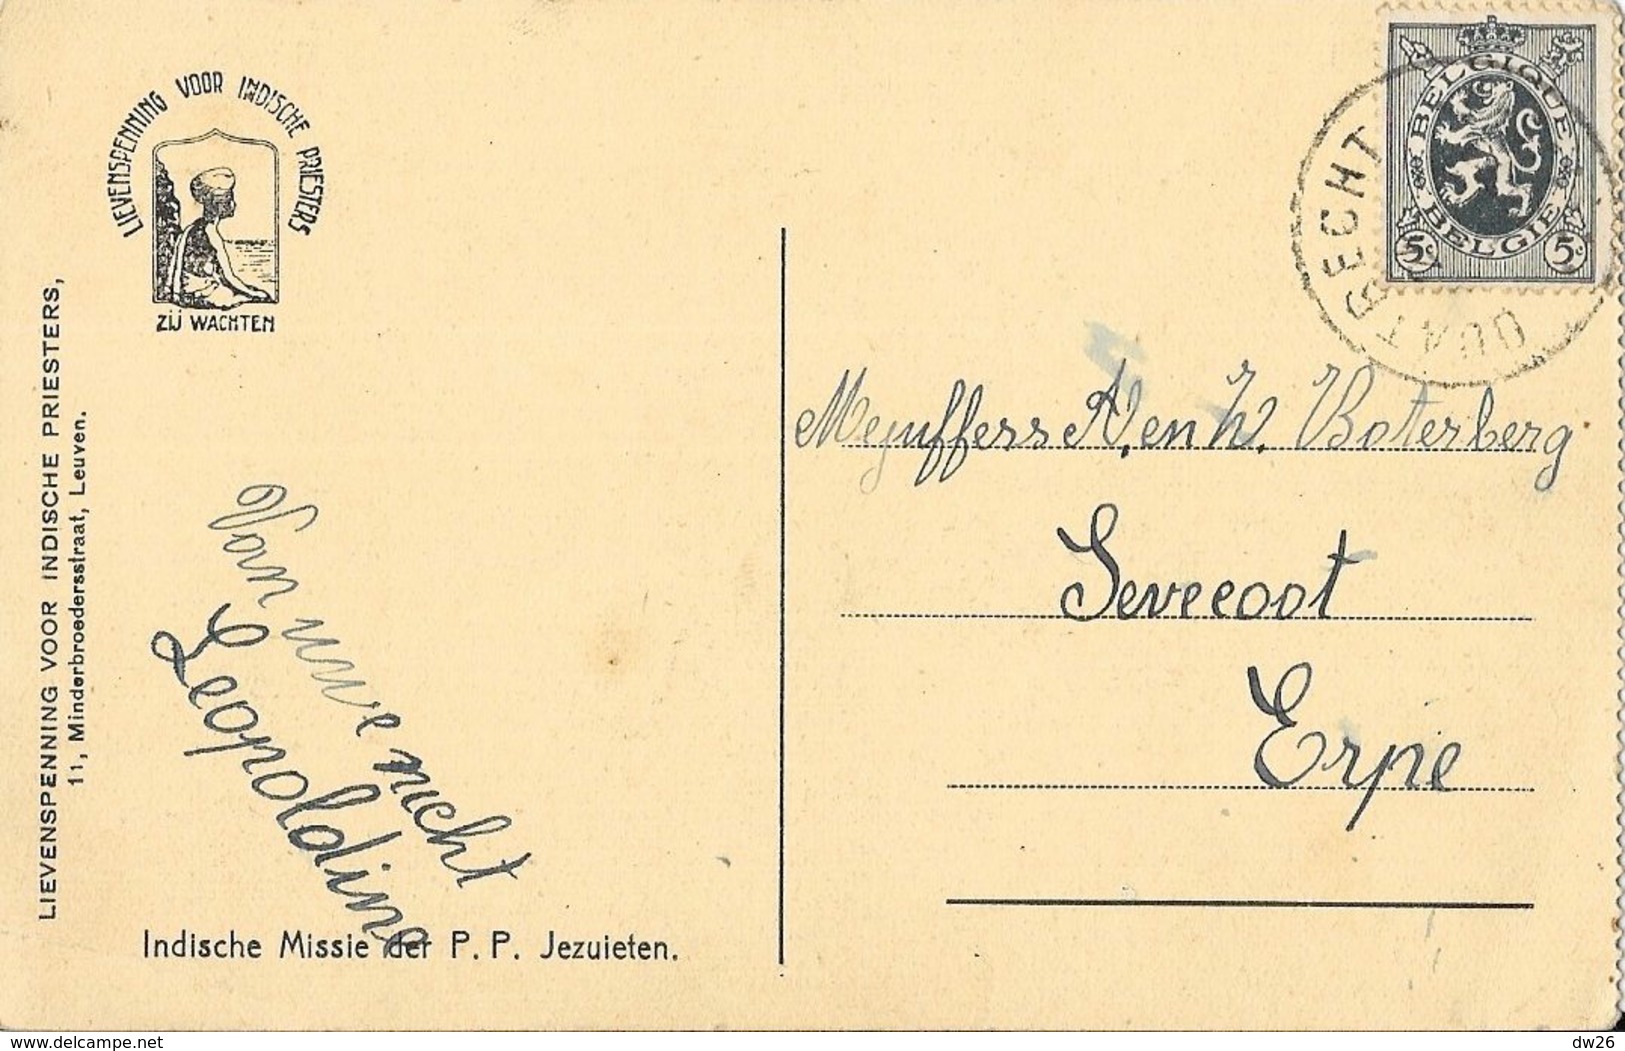 LIEVENSPENNING VOOR INDISCHE PRIESTERS
ZIJ WACHTEN
LIEVENSPENNING VOOR INDISCHE PRIESTERS,
11, Minderbroedersstraat, Leuven.
Van uwe nicht
Leopoldine
Indische Missie der P. P. Jezuieten.
BELGIQUE
BELGIE
5c 5c
QUATRECHT
Mejuffers A, en W, Boterberg
Sevecoot
Erpe
delcampe.net
dw26